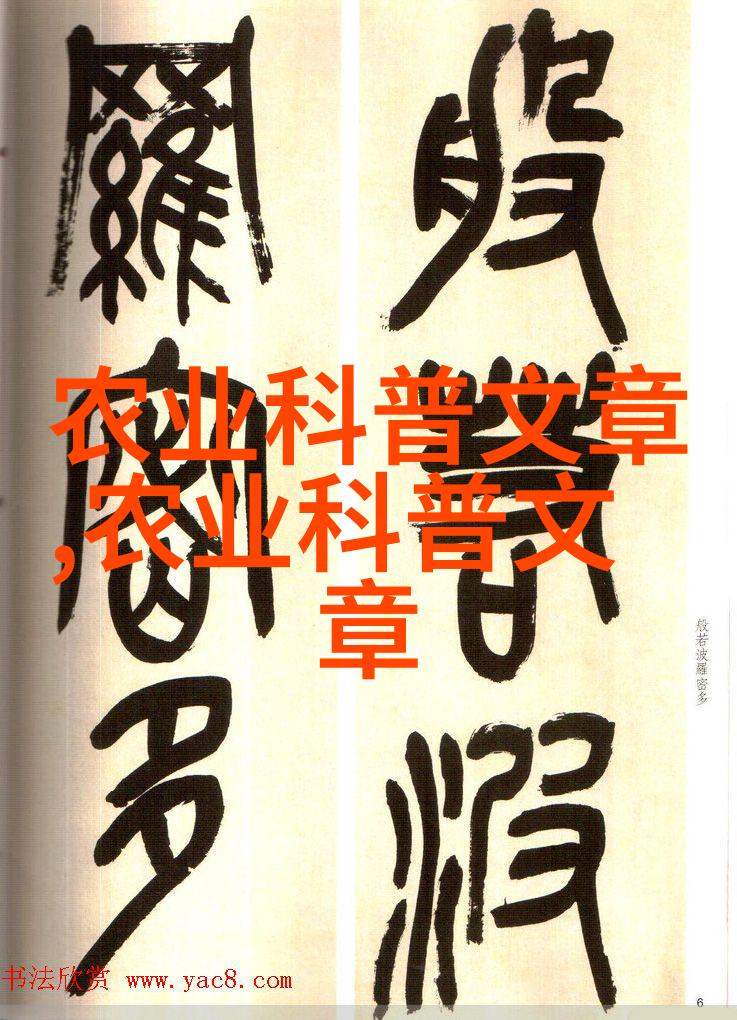 般若波
羅密多
农业科普文章
,农业科普文
章
般若波羅密多
书法欣赏 www.yac8.com
6